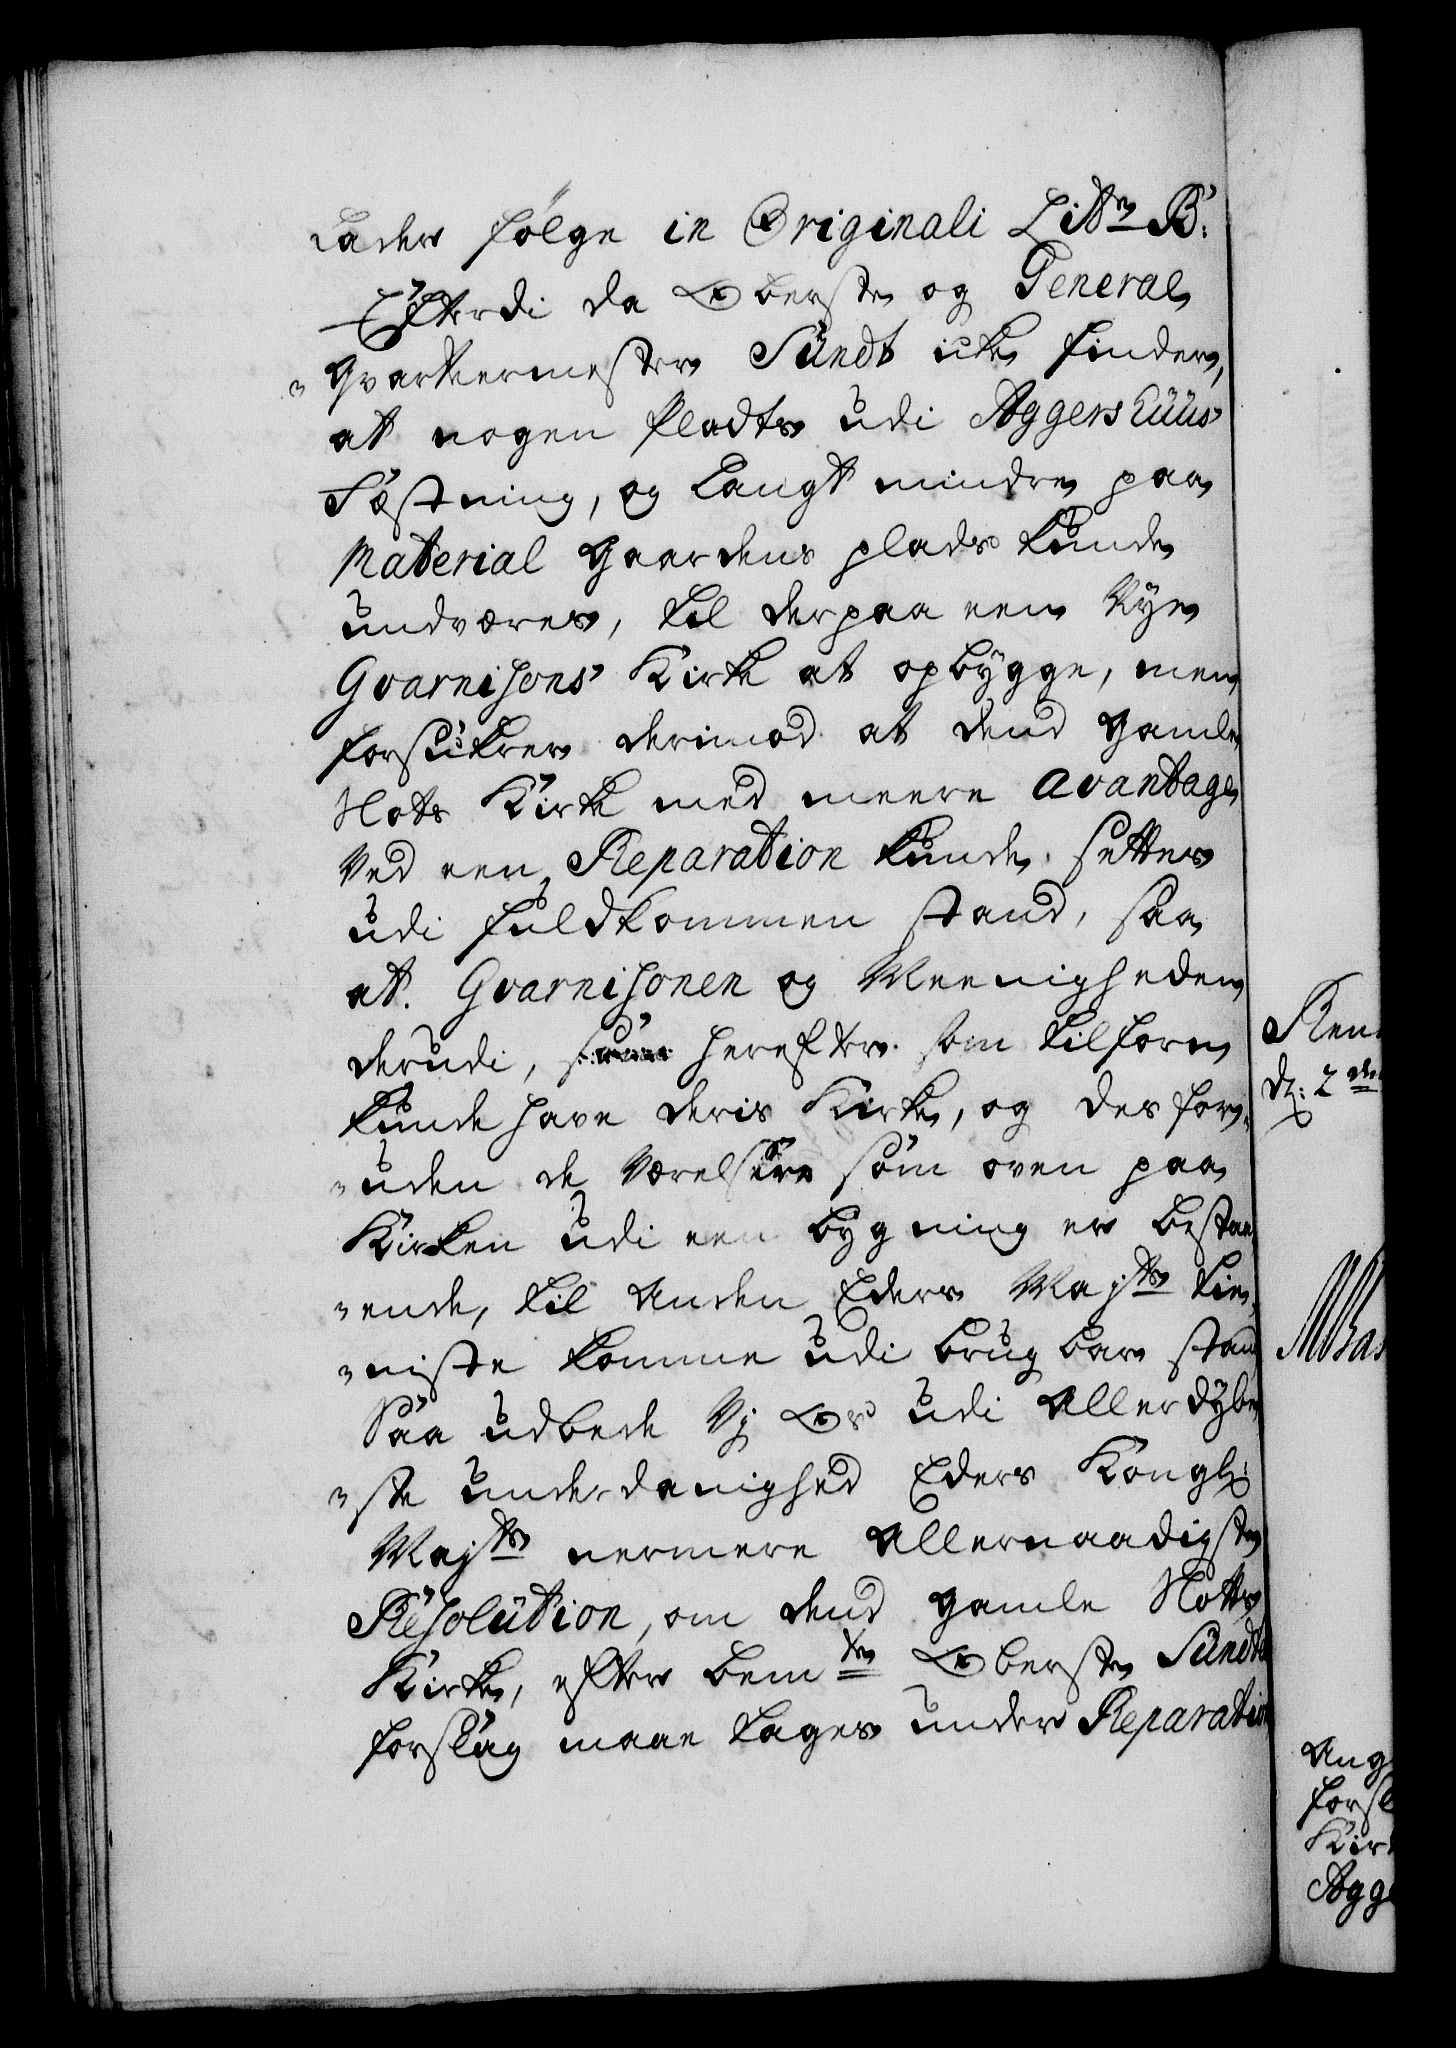 lader følge in Originali Litr B:
Efterdi da Oberste og General
qvarteermester Sündt icke finder,
at nogen Pladts udi Aggershuus
Fæstning, og langt mindre paa
Material gaardens plads kunde
undværes, til derpaa een Nye
Gvarnisons Kirke at opbygge, men
forsickrer derimod at dend gamle
Slots Kirke med meere avantage
Ved een Reparation kunde settes
udi fuldkommen stand, saa
at Gvarnisonen og Meenigheden
derudi, herefter som tilforn
kunde have deris Kirke, og desfor-
uden de Værelser som oven paa
Kirken udi een bygning er bestaa-
ende, til anden Eders Mayts tie-
niste komme udi brugbar stand
Saa udbede Vj os udi allerdybe-
ste underdanighed Eders Kongl:
Mayts nermere allernaadigste
Resolution, om dend gamle Slotts
Kirke, efter bemte Oberste Sündts
forslag maae tages under Reparation
Ren
d: 2 de
Ang
forsl
Kir
Agg